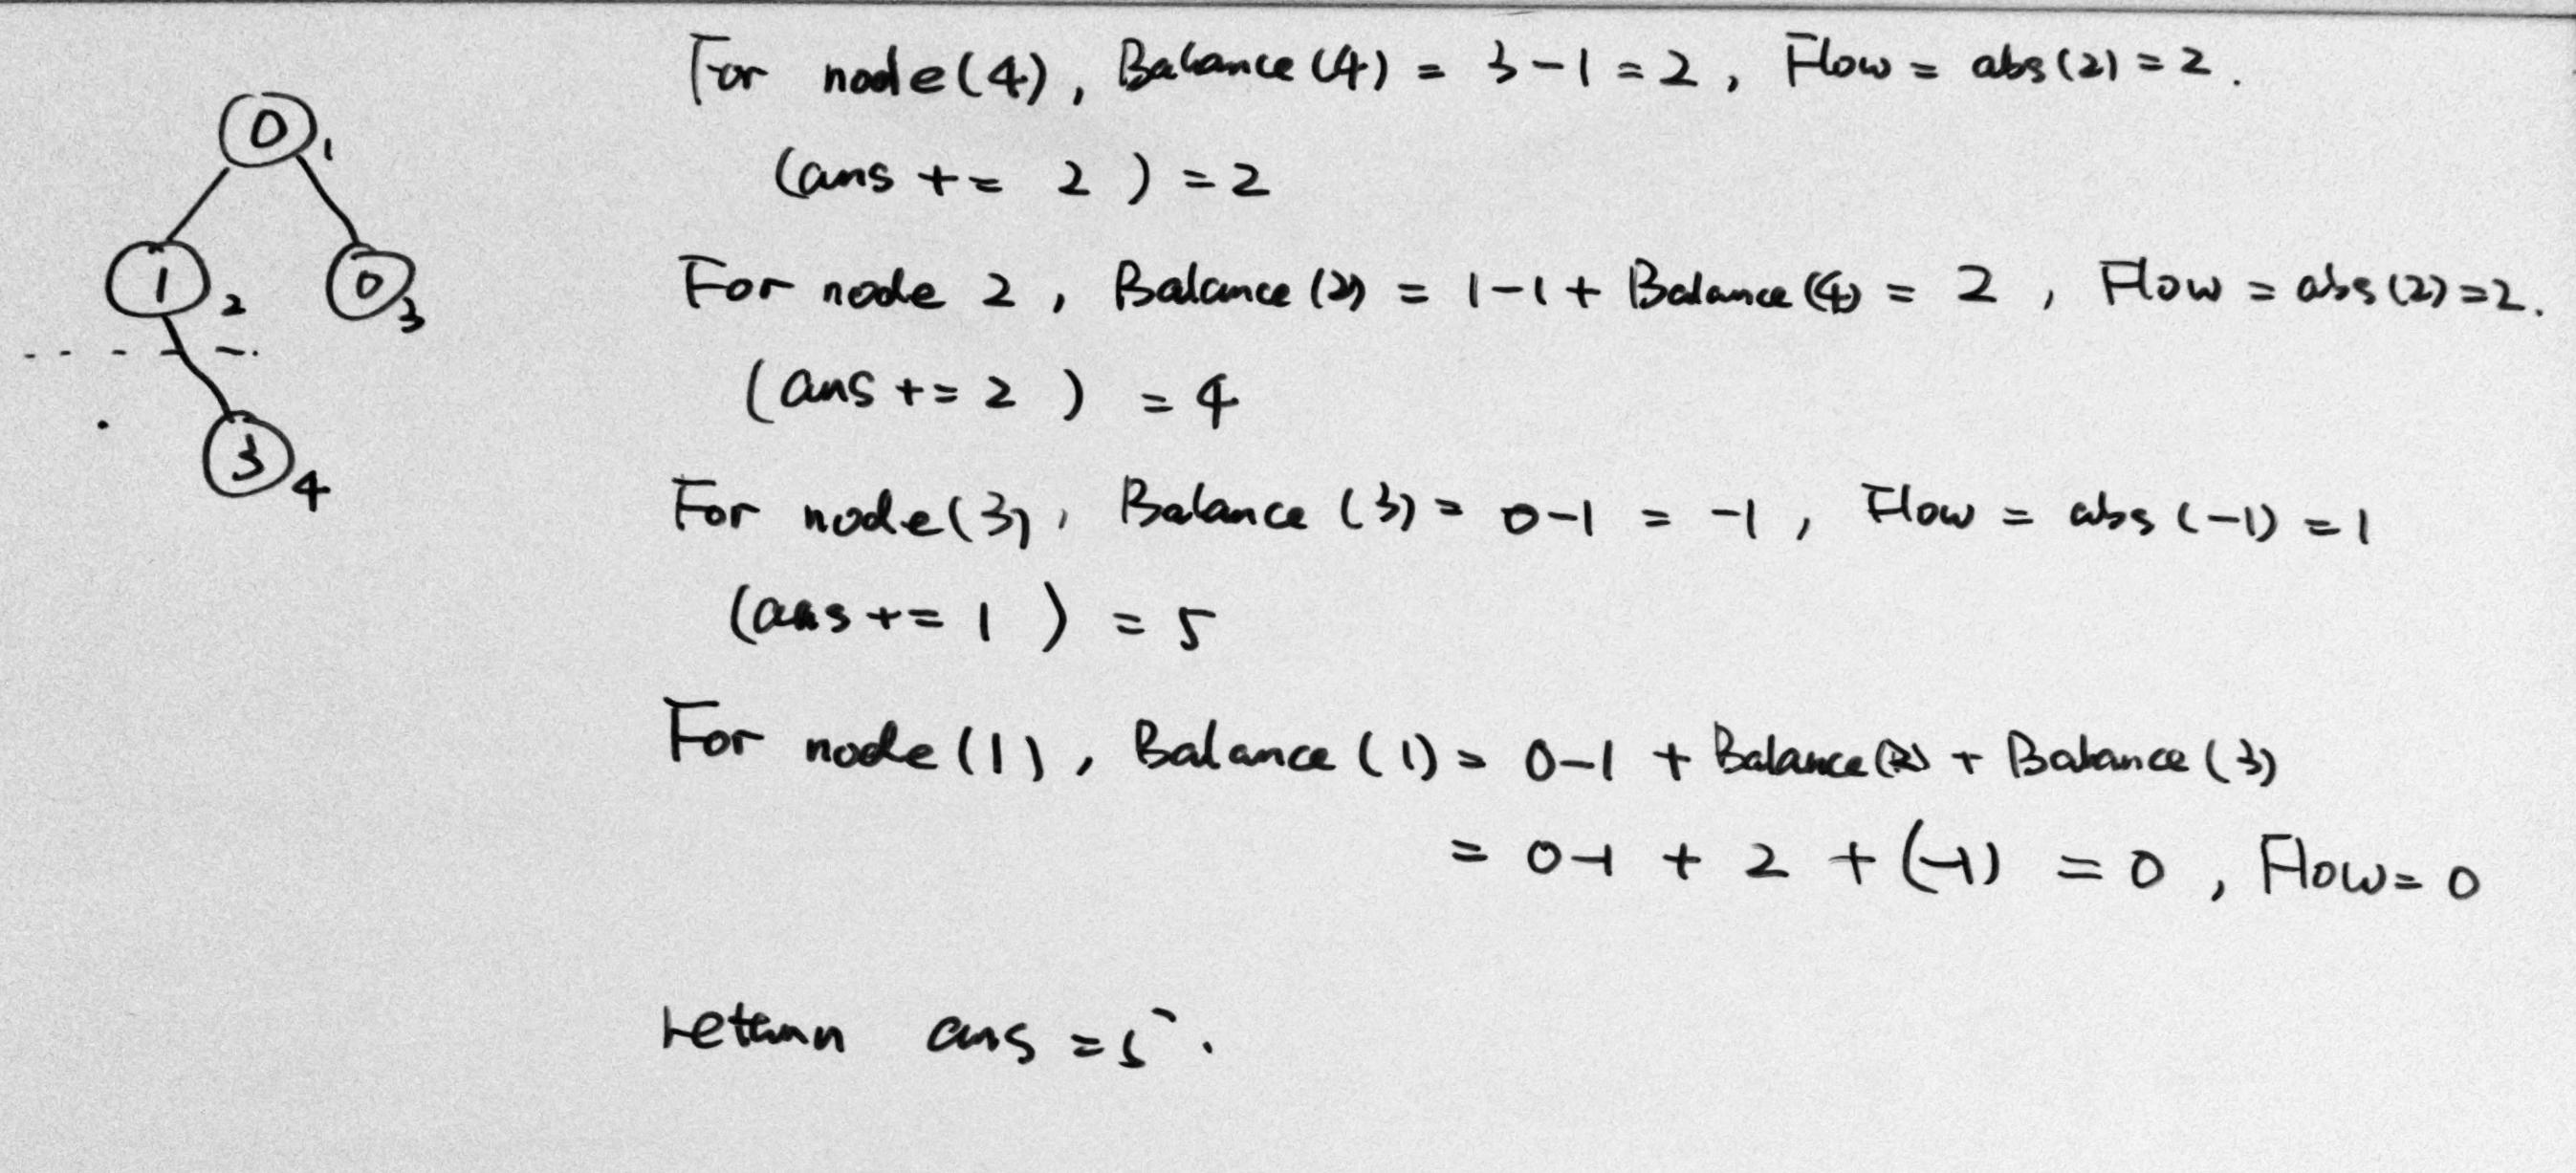 For node(4), Balance(4) = 3-1 = 2, Flow = abs(2) = 2.
(ans += 2) = 2
For node 2, Balance(2) = 1-1 + Balance(4) = 2, Flow = abs(2) = 2.
(ans += 2) = 4
For node(3), Balance(3) = 0-1 = -1, Flow = abs(-1) = 1
(ans += 1) = 5
For node(1), Balance(1) = 0-1 + Balance(2) + Balance(3)
= 0-1 + 2 + (-1) = 0, Flow = 0
return ans = 5.
0 1
1 2
0 3
3 4